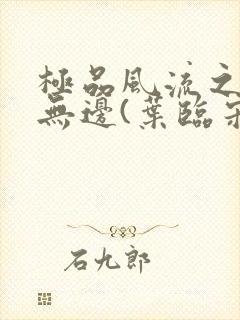 極品風流之
無邊(葉臨
石九郎